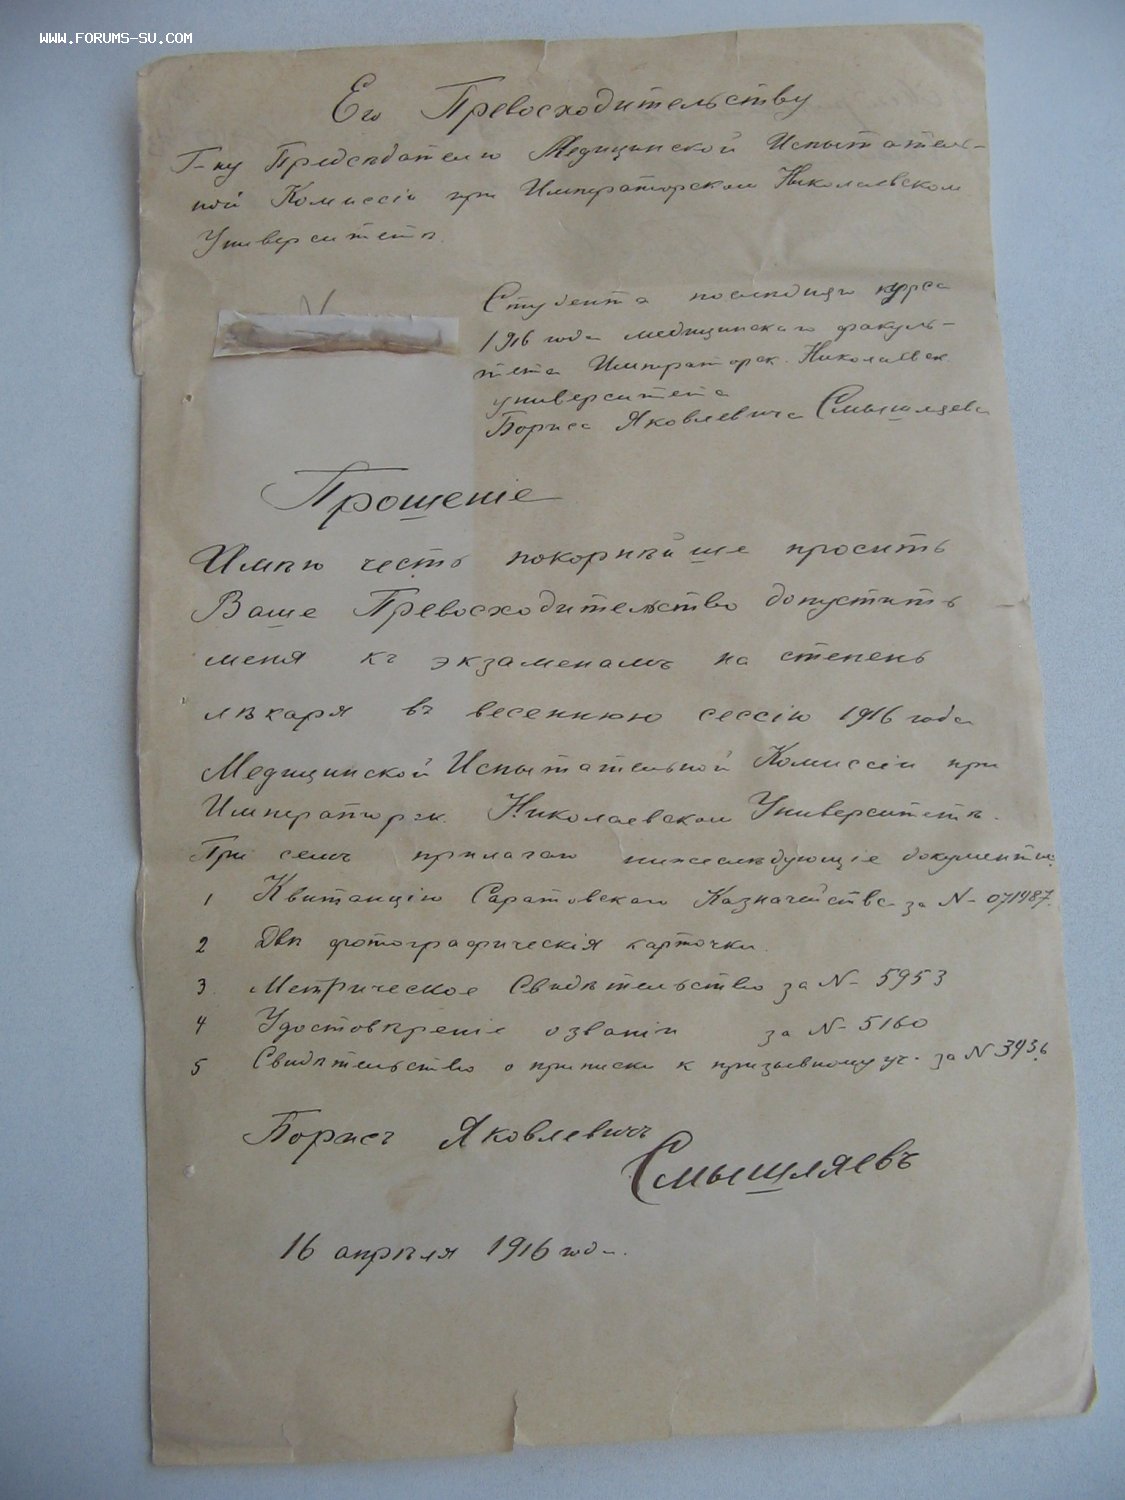 WWW.FORUMS-SU.COM
Его Превосходительству
Г-ну Предсѣдателю Медицинской Испытатель-
ной Комиссіи при Императорском Николаевском
Университетѣ.
Студента послѣдняго курса
1916 года медицинскаго факуль-
тета Императорск. Николаевск.
университета
Бориса Яковлевича Смышляева
Прошеніе
Имѣю честь покорнѣйше просить
Ваше Превосходительство допустить
меня къ экзаменамъ на степень
лѣкаря въ весеннюю сессію 1916 года
Медицинской Испытательной Комиссіи при
Императорск. Николаевском Университетѣ.
При семъ прилагаю нижеслѣдующіе документы:
1 Квитанцію Саратовскаго Казначейства за N- 071987.
2 Двѣ фотографическія карточки.
3. Метрическое Свидѣтельство за N- 5953
4 Удостовѣреніе о званіи за N- 5160
5 Свидѣтельство о приписки к призывному уч. за N 3936
Борисъ Яковлевичъ
Смышляевъ
16 апрѣля 1916 года.